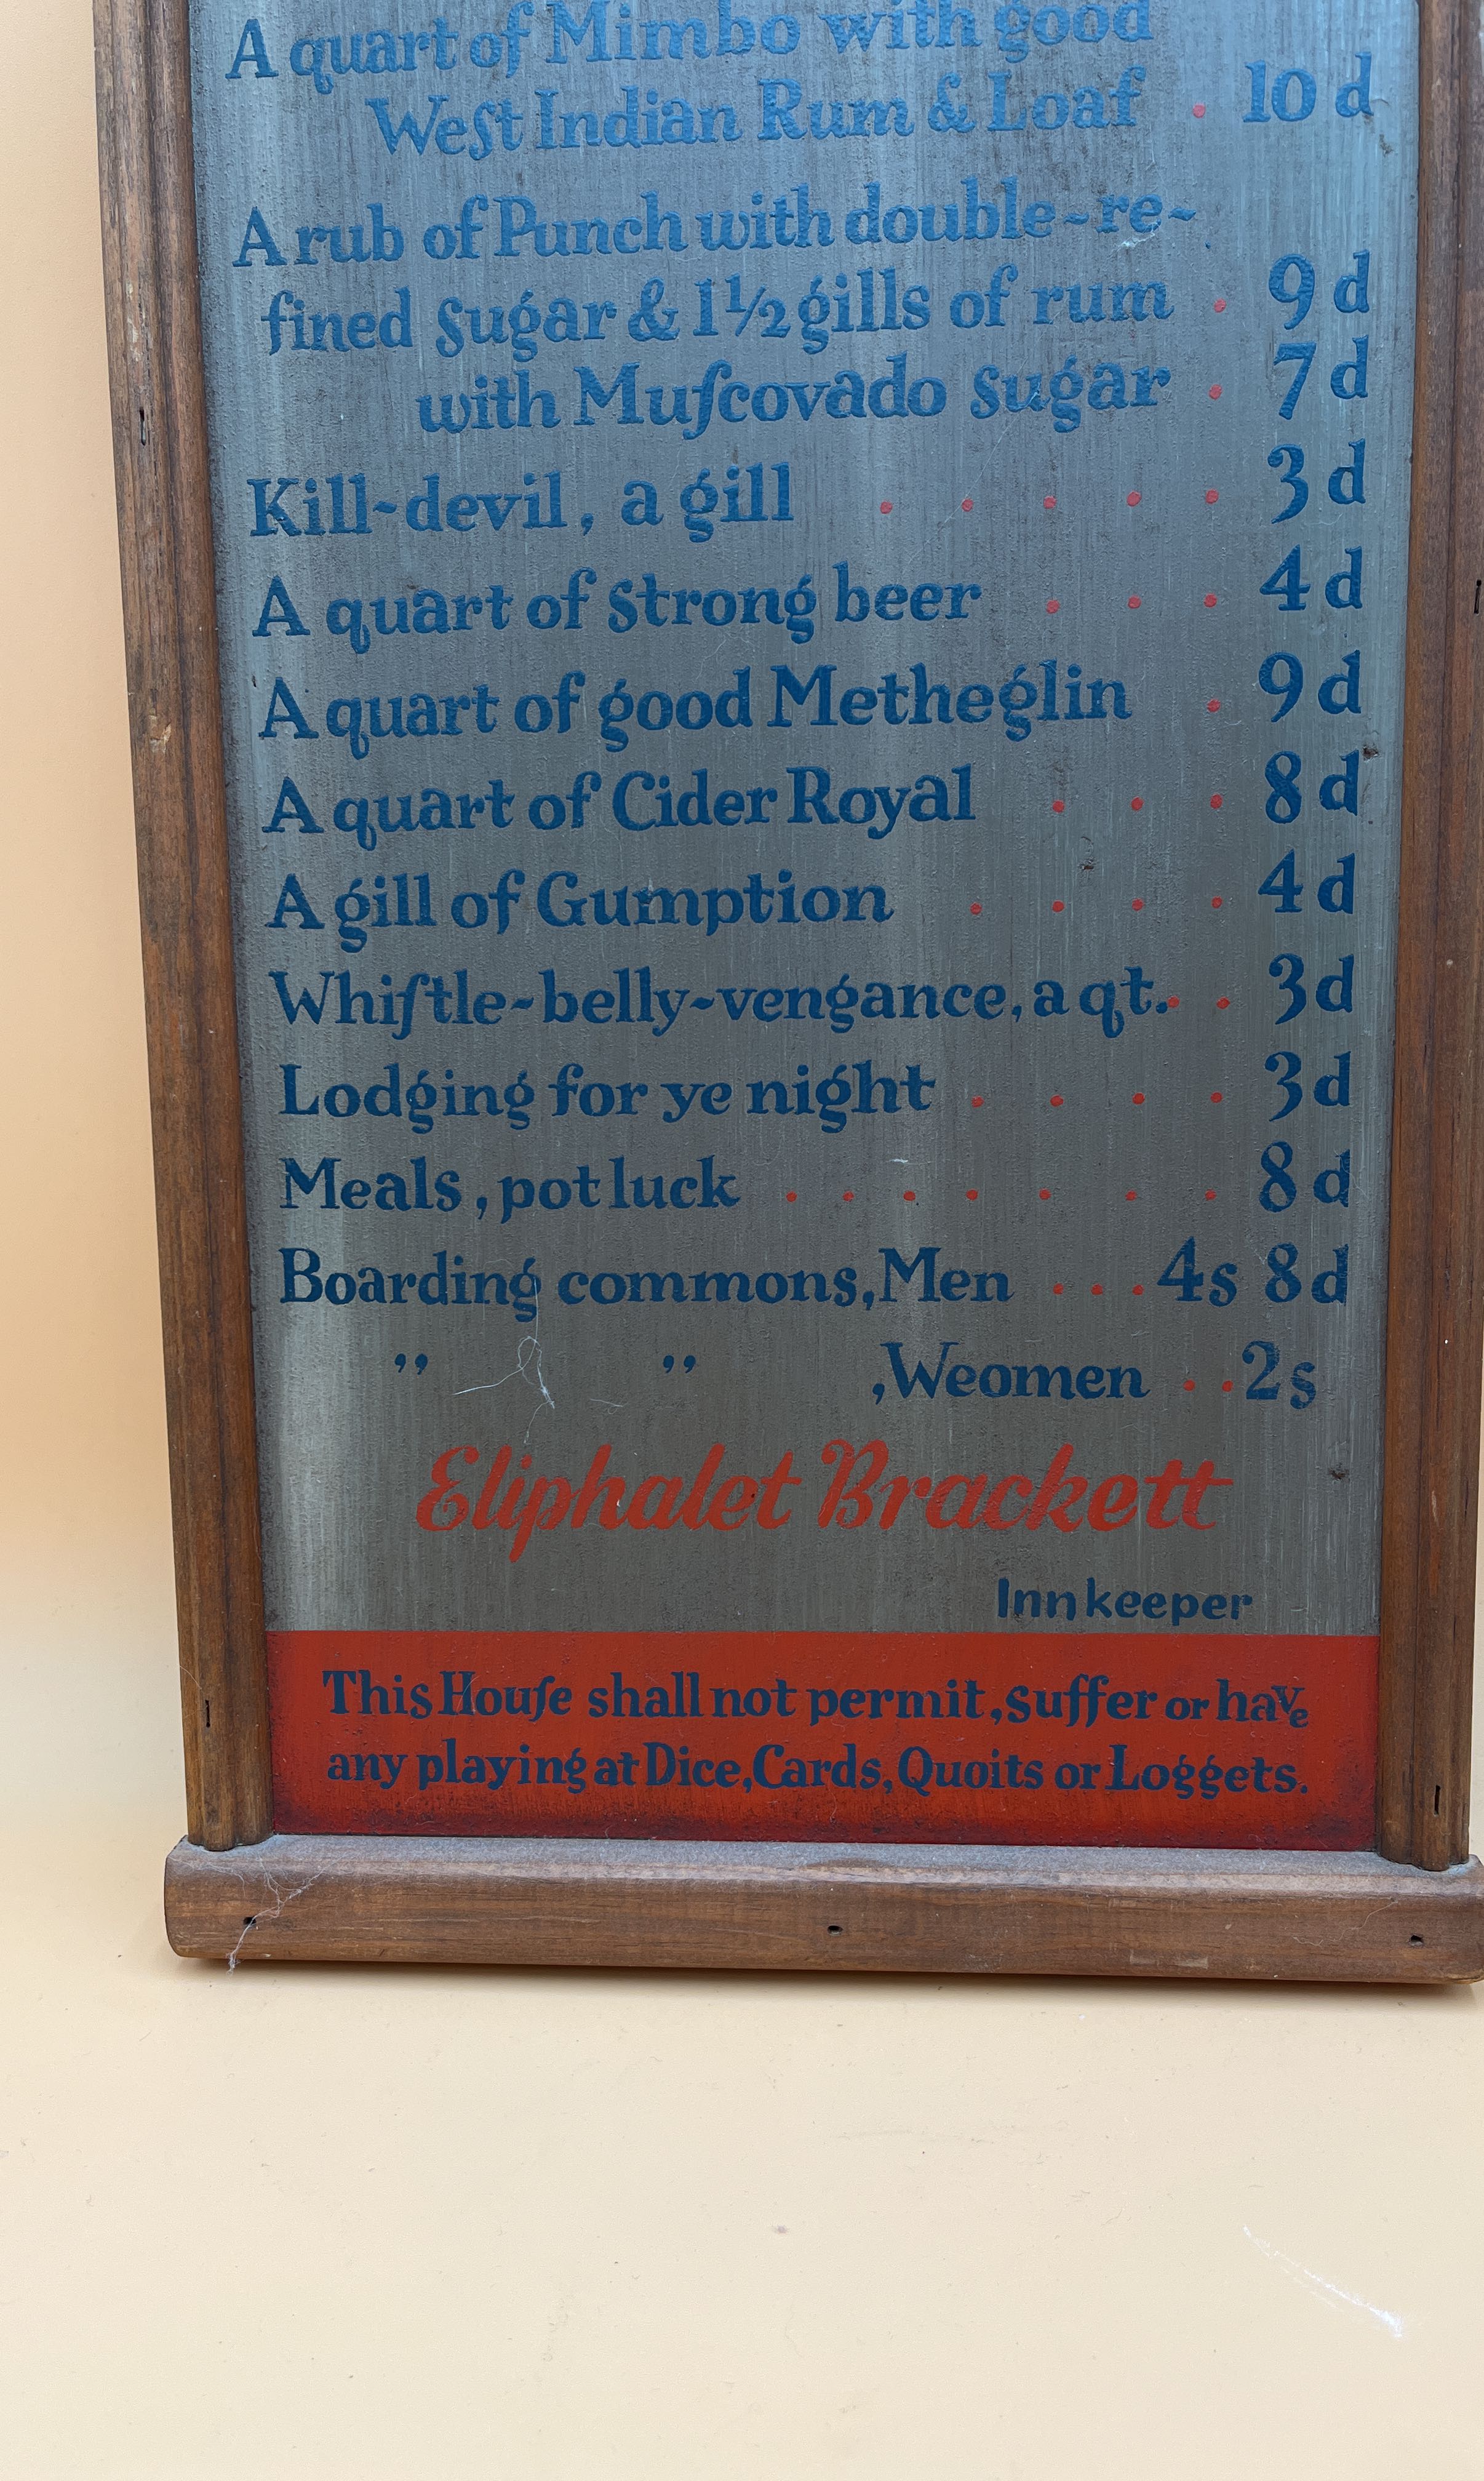 A quart of Mimbo with good
Weſt Indian Rum & Loaf . 10 d
A rub of Punch with double-re-
fined sugar & 1½ gills of rum . 9 d
with Muſcovado sugar . 7 d
Kill-devil, a gill . . . . . 3 d
A quart of strong beer . . . 4 d
A quart of good Metheglin . 9 d
A quart of Cider Royal . . . 8 d
A gill of Gumption . . . . 4 d
Whiſtle-belly-vengance, a qt. . . 3 d
Lodging for ye night . . . . 3 d
Meals, pot luck . . . . . . . 8 d
Boarding commons, Men . . . 4s 8d
” ” , Weomen . . 2s
Eliphalet Brackett
Innkeeper
This Houſe shall not permit, suffer or have
any playing at Dice, Cards, Quoits or Loggets.